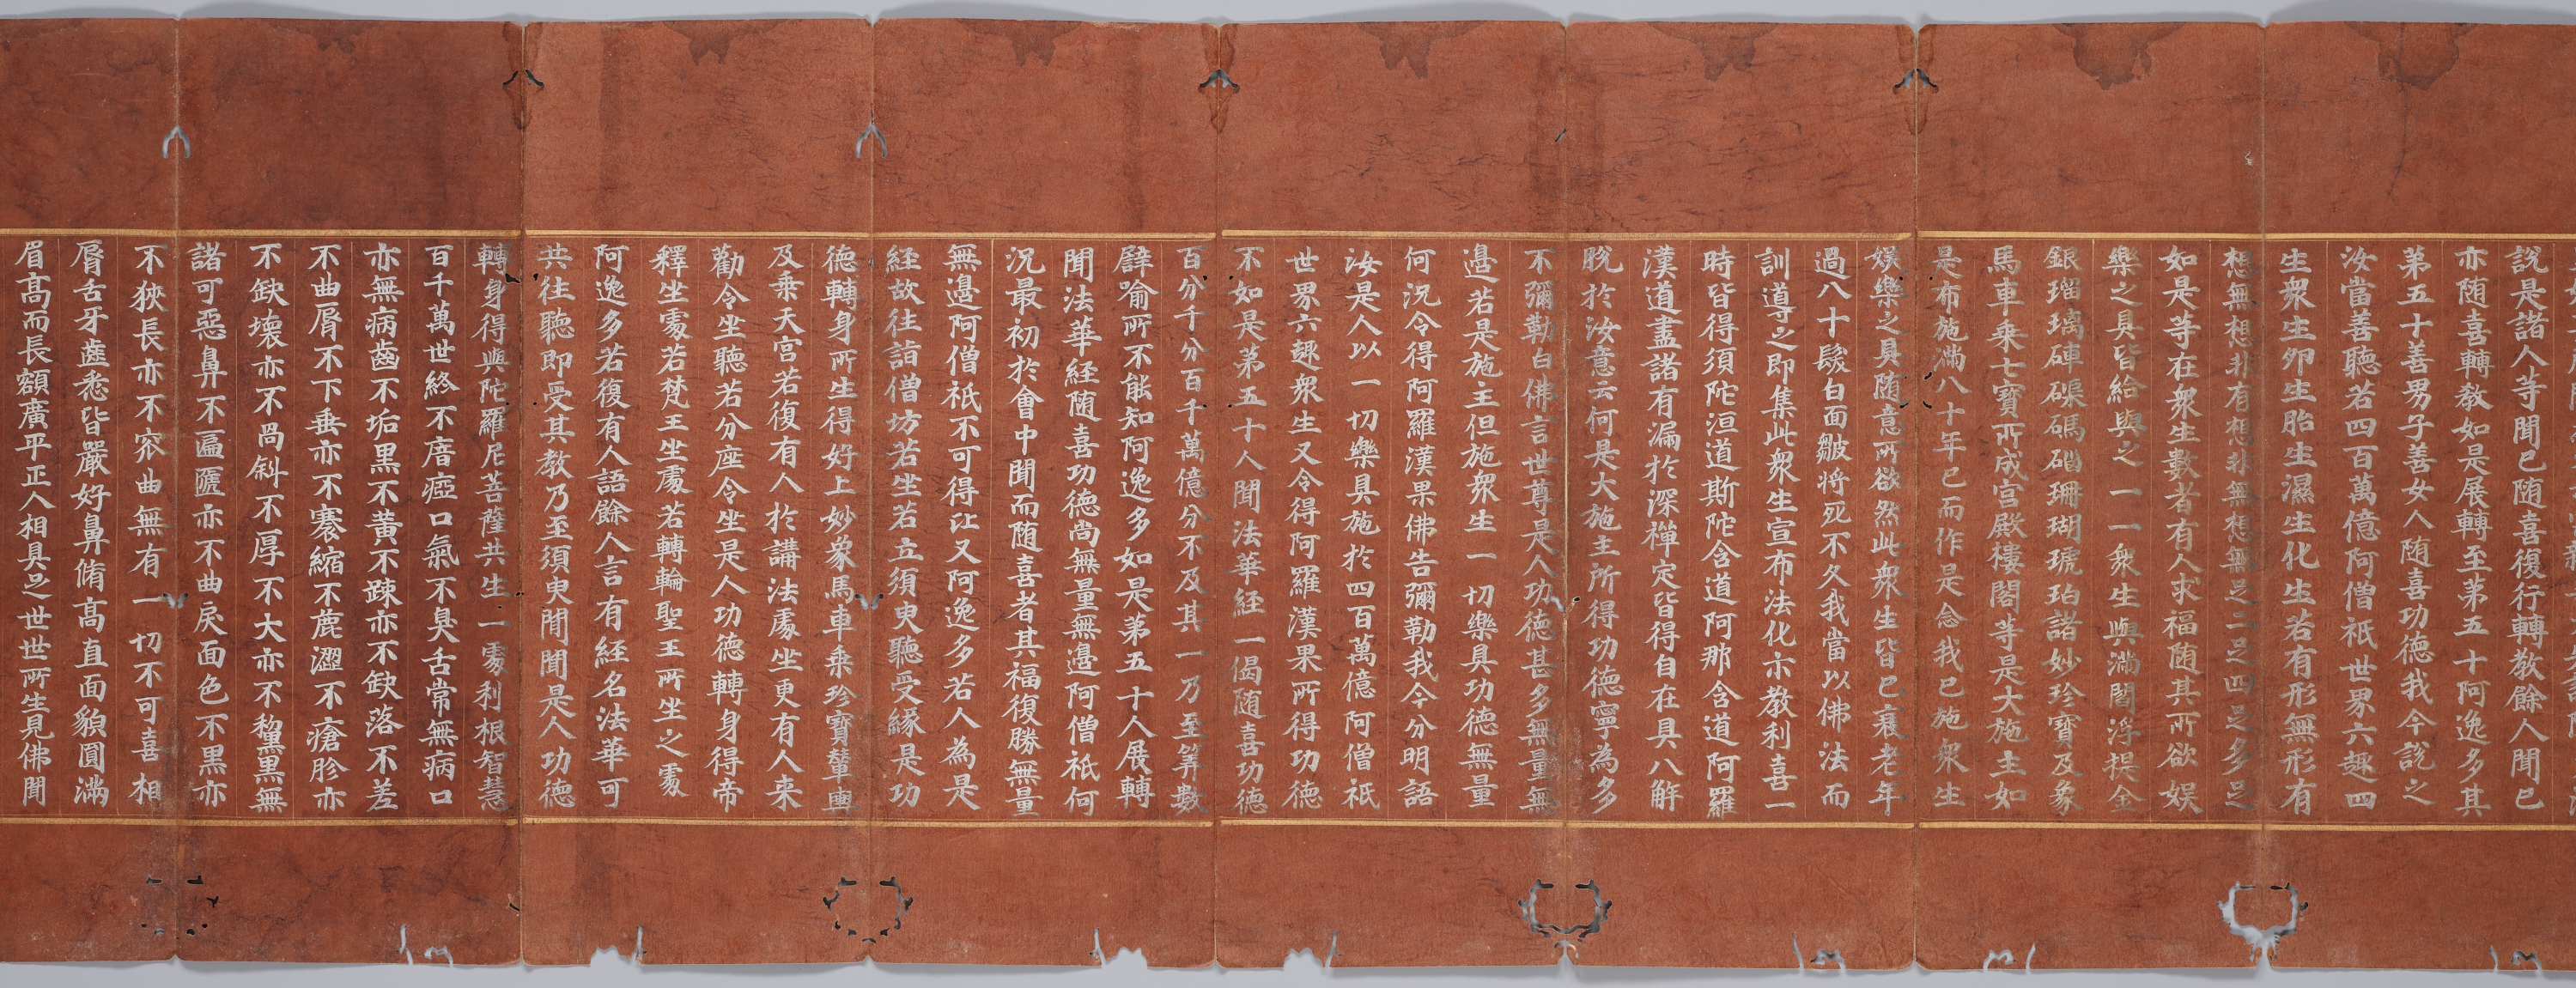 說是諸人等聞已随喜復行轉教餘人聞已
亦随喜轉教如是展轉至第五十阿逸多其
第五十善男子善女人随喜功德我今說之
汝當善聽若四百萬億阿僧祇世界六趣四
生衆生夘生胎生濕生化生若有形無形有
想無想非有想非無想無足二足四足多足
如是等在衆生數者有人求福随其所欲娱
樂之具皆給與之一一衆生與滿閻浮提金
銀瑠璃硨磲碼碯珊瑚琥珀諸妙珍寶及象
馬車乗七寶所成宫殿樓閣等是大施主如
是布施滿八十年已而作是念我已施衆生
娱樂之具随意所欲然此衆生皆已衰老年
過八十髮白面皺将死不久我當以佛法而
訓導之即集此衆生宣布法化示教利喜一
時皆得須陀洹道斯陀含道阿那含道阿羅
漢道盡諸有漏於深禪定皆得自在具八解
脫於汝意云何是大施主所得功德寧為多
不彌勒白佛言世尊是人功德甚多無量無
邊若是施主但施衆生一切樂具功德無量
何況令得阿羅漢果佛告彌勒我今分明語
汝是人以一切樂具施於四百萬億阿僧祇
世界六趣衆生又令得阿羅漢果所得功德
不如是第五十人聞法華経一偈随喜功德
百分千分百千萬億分不及其一乃至筭數
譬喻所不能知阿逸多如是第五十人展轉
聞法華経随喜功德尚無量無邊阿僧祇何
況最初於會中聞而随喜者其福復勝無量
無邊阿僧祇不可得比又阿逸多若人為是
経故往詣僧坊若坐若立須臾聽受縁是功
德轉身所生得好上妙象馬車乗珍寶輦輿
及乗天宫若復有人於講法處坐更有人来
勸令坐聽若分座令坐是人功德轉身得帝
釋坐處若梵王坐處若轉輪聖王所坐之處
阿逸多若復有人語餘人言有経名法華可
共往聽即受其教乃至須臾間聞是人功德
轉身得與陀羅尼菩薩共生一處利根智慧
百千萬世終不瘖瘂口氣不臭舌常無病口
亦無病齒不垢黒不黄不踈亦不缺落不差
不曲脣不下垂亦不褰縮不麁澀不瘡胗亦
不缺壞亦不喎斜不厚不大亦不黧黒無
諸可惡鼻不匾㔸亦不曲戾面色不黒亦
不狹長亦不窊曲無有一切不可喜相
脣舌牙齒悉皆嚴好鼻脩髙直面貌圓滿
眉髙而長額廣平正人相具足世世所生見佛聞